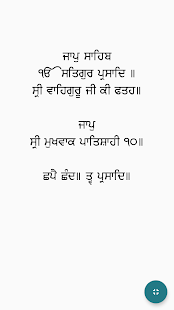 ਜਾਪੁ ਸਾਹਿਬ
ੴ ਸਤਿਗੁਰ ਪ੍ਰਸਾਦਿ ॥
ਸ੍ਰੀ ਵਾਹਿਗੁਰੂ ਜੀ ਕੀ ਫਤਹ॥
ਜਾਪੁ
ਸ੍ਰੀ ਮੁਖਵਾਕ ਪਾਤਿਸ਼ਾਹੀ ੧੦॥
ਛਪੈ ਛੰਦ॥ ਤ੍ਵ ਪ੍ਰਸਾਦਿ॥